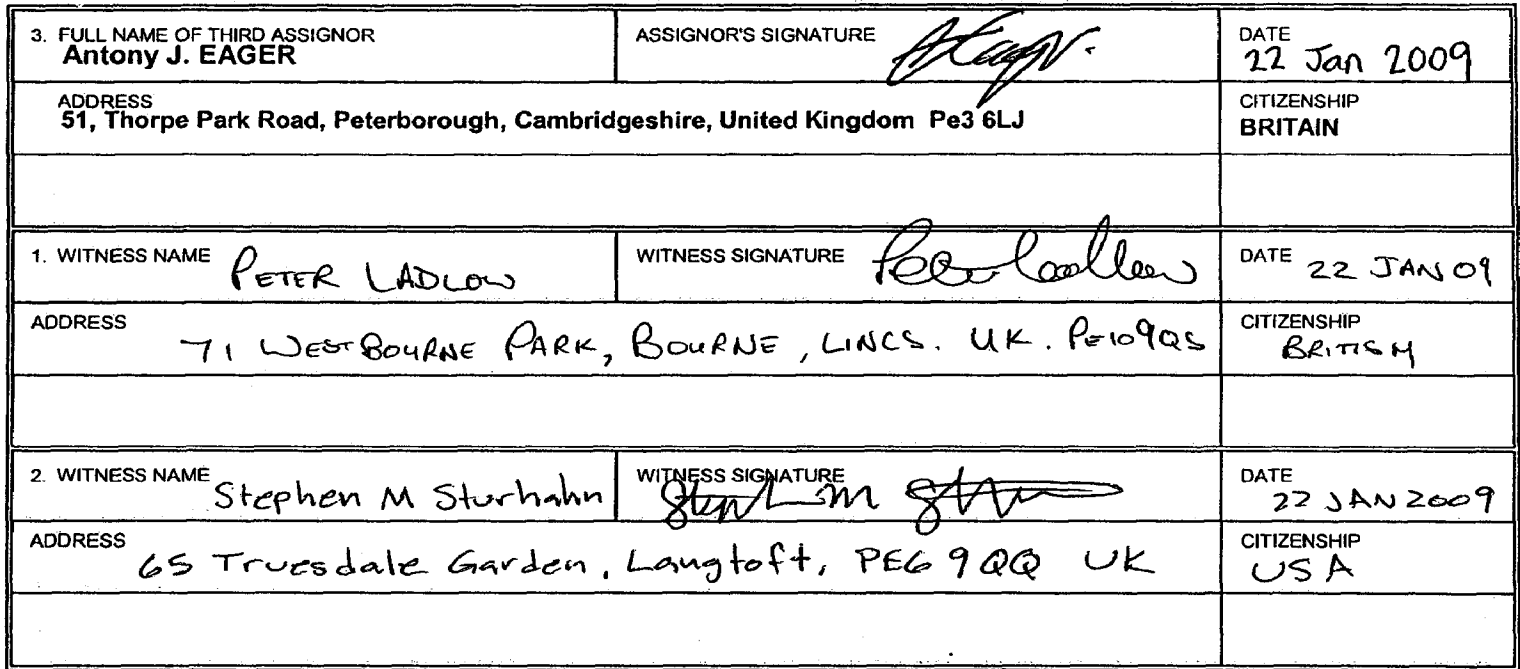 3. FULL NAME OF THIRD ASSIGNOR
Antony J. EAGER
ASSIGNOR'S SIGNATURE
DATE
22 Jan 2009
ADDRESS
51, Thorpe Park Road, Peterborough, Cambridgeshire, United Kingdom Pe3 6LJ
CITIZENSHIP
BRITAIN
1. WITNESS NAME PETER LADLOW
WITNESS SIGNATURE
DATE 22 JAN 09
ADDRESS
71 WESTBOURNE PARK, BOURNE, LINCS. UK. PE109QS
CITIZENSHIP
BRITISH
2. WITNESS NAME Stephen M Sturhahn
WITNESS SIGNATURE
DATE
22 JAN 2009
ADDRESS
65 Truesdale Garden, Langtoft, PE6 9QQ UK
CITIZENSHIP
USA